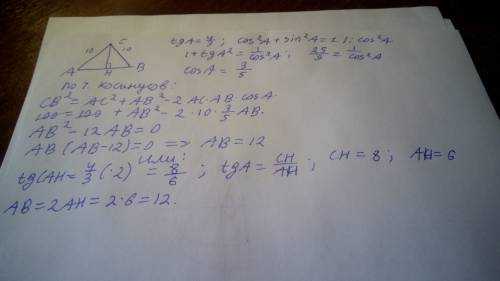 C
10 10
A H B
tg A = 4/3 ; cos²A + sin²A = 1 | : cos²A
1 + tg A² = 1/cos²A ; 25/9 = 1/cos²A
cos A = 3/5
по т. косинусов:
CB² = AC² + AB² - 2 AC · AB · cos A
100 = 100 + AB² - 2 · 10 · 3/5 AB.
AB² - 12 AB = 0
AB (AB - 12) = 0 => AB = 12
или:
tg CAH = 4/3 (· 2) = 8/6 ; tg A = CH/AH ; CH = 8 ; AH = 6
AB = 2AH = 2 · 6 = 12.